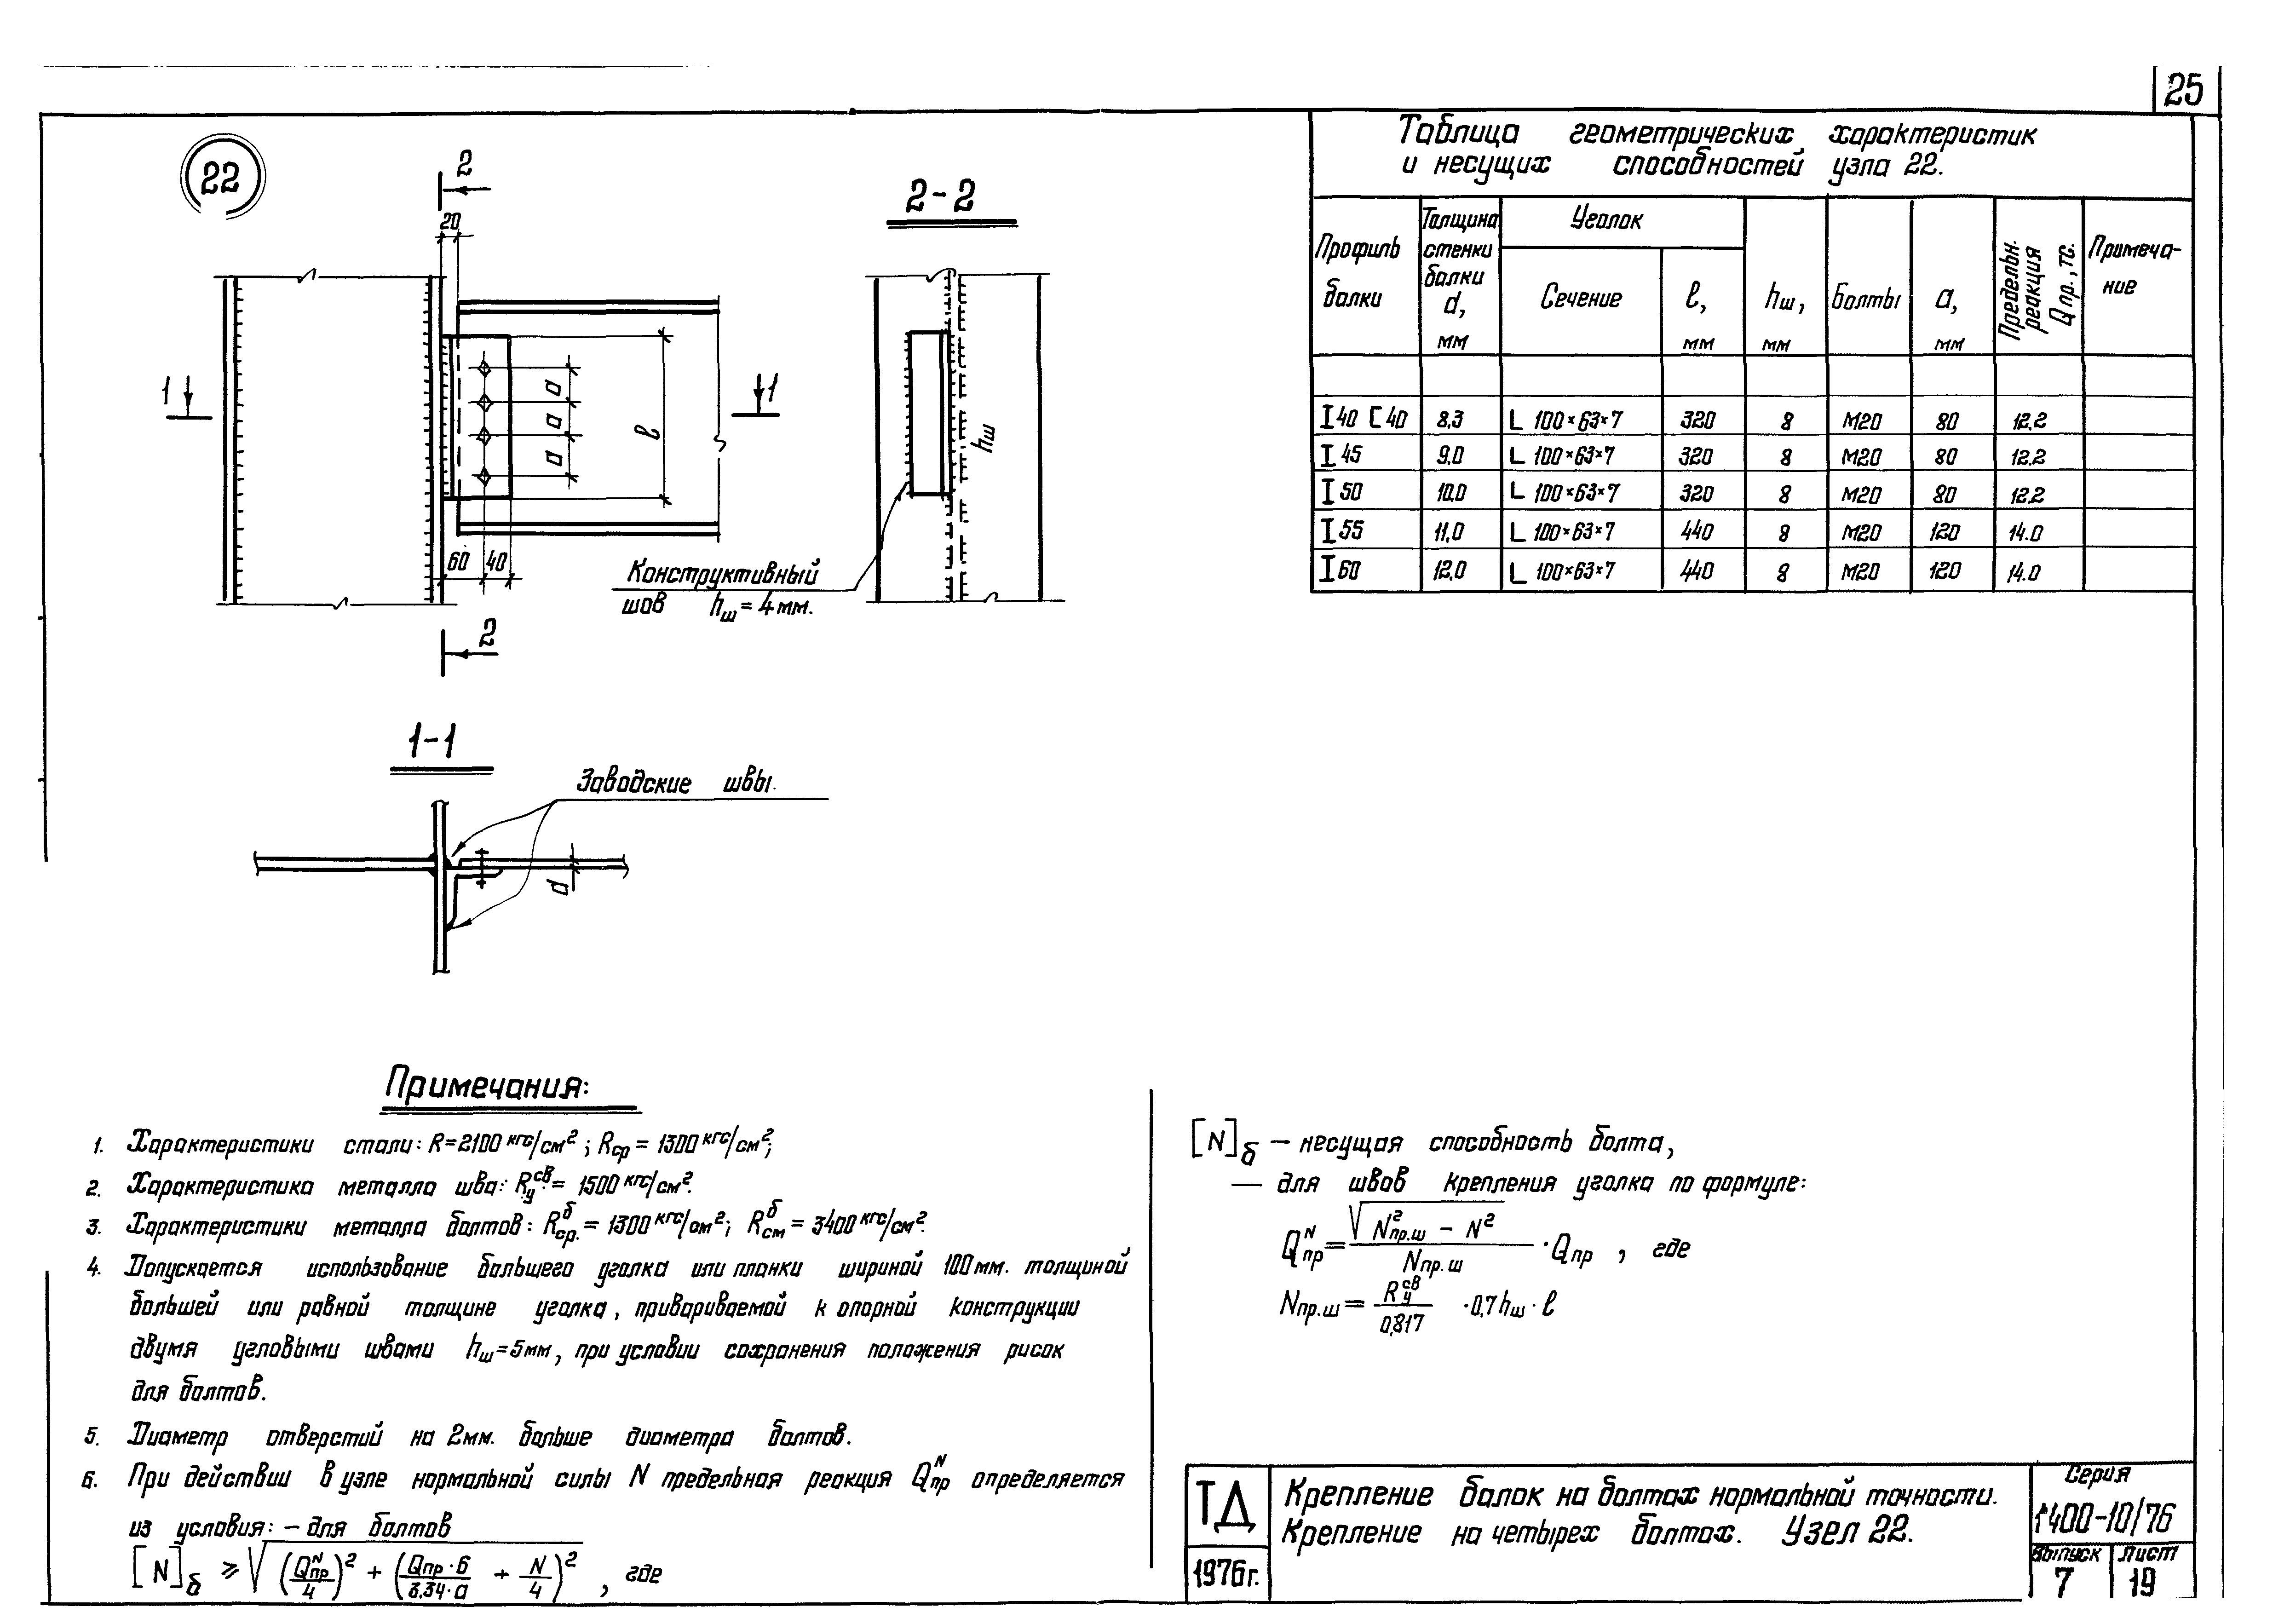 25
22
2
20
1
1
a
a
a
l
60
40
2
2-2
hш
Конструктивный
шов hш = 4 мм.
1-1
Заводские швы.
d
Таблица геометрических характеристик
и несущих способностей узла 22.
Профиль балки | Толщина стенки балки d, мм | Уголок | hш, мм | Болты | a, мм | Предельн. реакция Qпр, тс. | Примечание
Сечение | l, мм
I 40 [ 40 | 8,3 | L 100×63×7 | 320 | 8 | М20 | 80 | 12,2
I 45 | 9,0 | L 100×63×7 | 320 | 8 | М20 | 80 | 12,2
I 50 | 10,0 | L 100×63×7 | 320 | 8 | М20 | 80 | 12,2
I 55 | 11,0 | L 100×63×7 | 440 | 8 | М20 | 120 | 14.0
I 60 | 12,0 | L 100×63×7 | 440 | 8 | М20 | 120 | 14.0
Примечания:
1. Характеристики стали: R=2100 кгс/см²; Rср = 1300 кгс/см²;
2. Характеристика металла шва: Rу^св = 1500 кгс/см².
3. Характеристики металла болтов: Rср.^б = 1300 кгс/см²; Rсм^б = 3400 кгс/см².
4. Допускается использование большего уголка или планки шириной 100 мм. толщиной
большей или равной толщине уголка, привариваемой к опорной конструкции
двумя угловыми швами hш=5мм, при условии сохранения положения рисок
для болтов.
5. Диаметр отверстий на 2мм. больше диаметра болтов.
6. При действии в узле нормальной силы N предельная реакция Qпр^N определяется
из условия: – для болтов
[N]б ≥ √((Qпр^N/4)² + (Qпр·6/3.34·a + N/4)²), где
[N]б – несущая способность болта,
— для швов крепления уголка по формуле:
Qпр^N = √(N²пр.ш – N²)/Nпр.ш · Qпр, где
Nпр.ш = Rу^св/0,817 · 0,7hш · l
ТД
1976г.
Крепление балок на болтах нормальной точности.
Крепление на четырех болтах. Узел 22.
Серия
1400-10/76
Выпуск
7
Лист
19